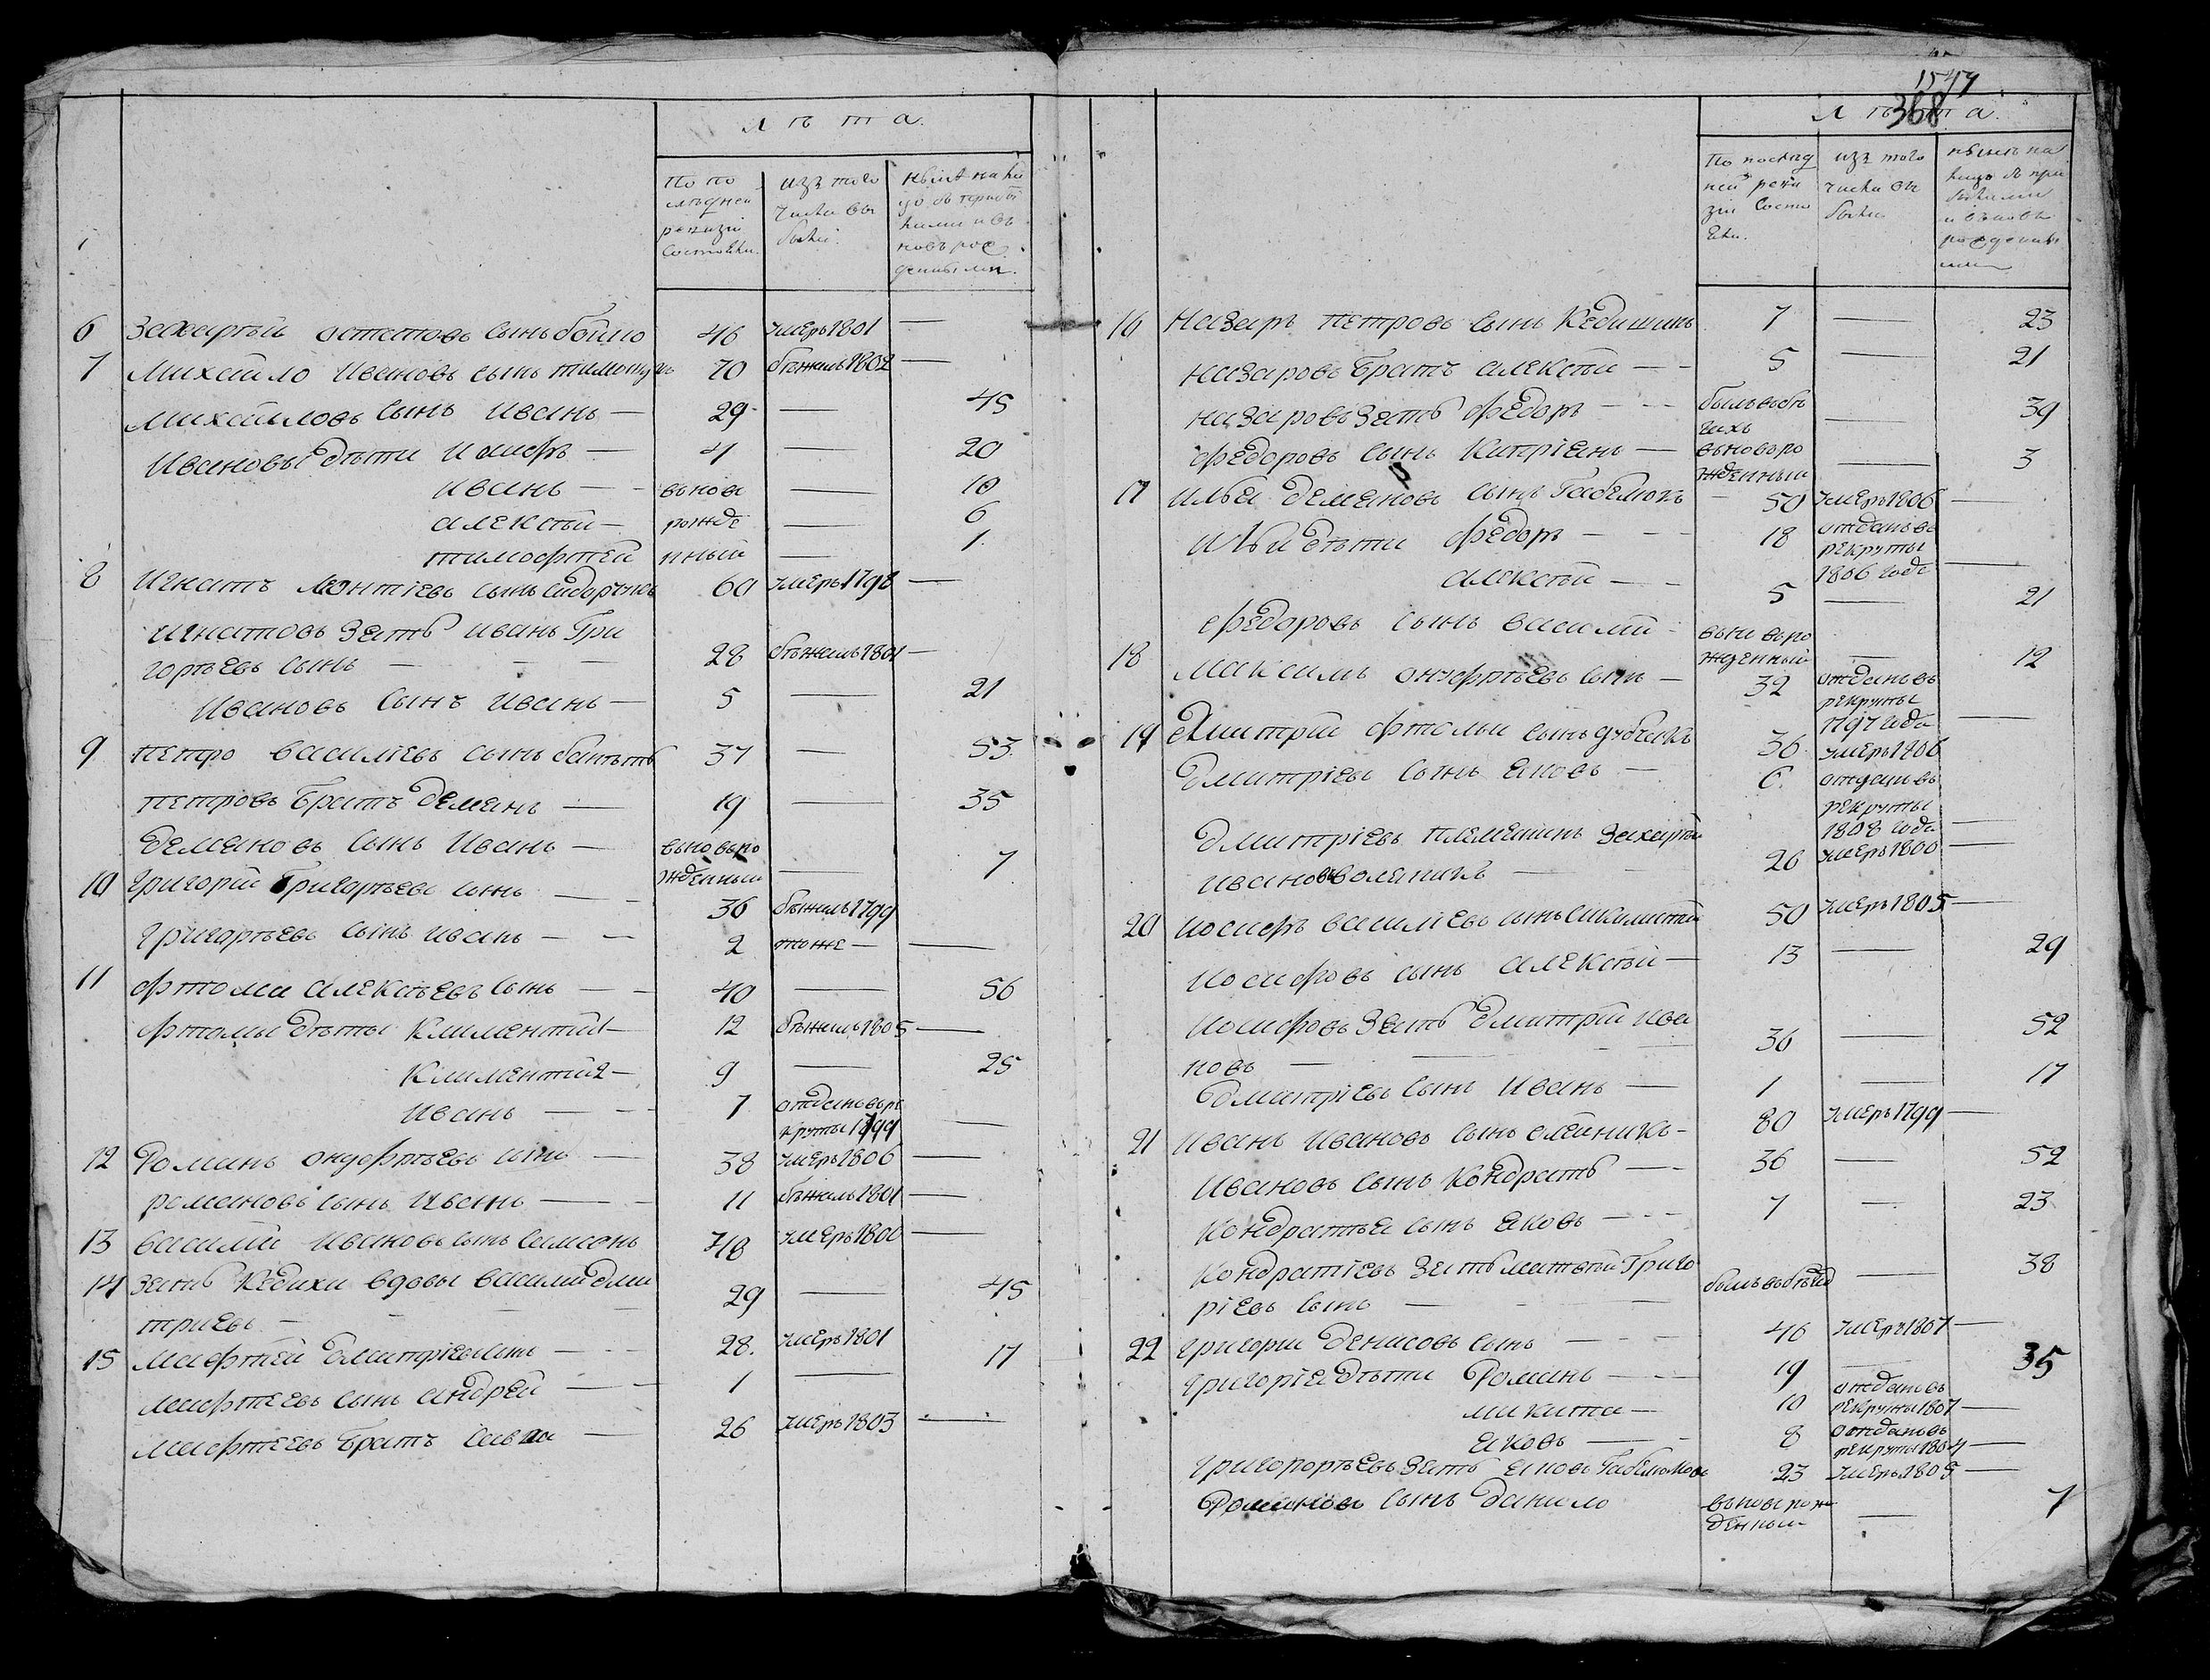 1547
368
Лѣта.
По по
слѣдней
ревизіи
состояли.
изъ того
числа вы
были.
нынѣ на ли
цо съ прибы
лыми и въ
новь рож
денными.
6 Захарій Остаповъ сынъ Бойко 46 умеръ 1801 —
7 Михайло Ивановъ сынъ 70 бѣжалъ 1802 —
Михайловъ сынъ Иванъ — 29 — 45
Ивановы дѣти Иосифъ — 4 — 20
Иванъ — вънова — 10
Алексѣй — рожде — 6
Тимофтей нный — 1
8 Игнатъ Леонтіевъ сынъ Сидорчукъ 60 умеръ 1798 —
Игнатовъ зять Иванъ Гри
горьевъ сынъ — 28 бѣжалъ 1801 —
Ивановъ сынъ Иванъ — 5 — 21
9 Петро Василіевъ сынъ 37 — 53
Петровъ братъ Демянъ — 19 — 35
Демяновъ сынъ Иванъ — вьновьро
жденный — 7
10 Григорій Григорьевъ сынъ — 36 бѣжалъ 1799
Григорьевъ сынъ Иванъ — 2 тоже — —
11 Фтома Алексѣевъ сынъ — 40 — 56
Фтомы дѣты Климентій 1 — 12 бѣжалъ 1805 —
Климентій 2 — 9 — 25
Иванъ — 7 отданъ въ ре
круты 1799 —
12 Романъ Онуфрѣевъ сынъ — 38 умеръ 1806 —
Романовъ сынъ Иванъ — 11 бѣжалъ 1801 —
13 Василій Ивановъ сынъ 48 умеръ 1800 —
14 Зять Кедихи вдовы Василій Дми
тріевъ — 29 — 45
15 Мафтей Дмитріевъ сынъ — 28. умеръ 1801
Мафтеевъ сынъ Андрей — 1 — 17
Мафтеевъ братъ Савка — 26 умеръ 1803 —
Лѣта.
По послѣд
ней реви
зіи состо
яли.
изъ того
числа вы
были
нынѣ на
лицо съ при
былыми
и вьновь
рожденны
ми
16 Назаръ Петровъ сынъ Кедишинъ 7 — 23
Назаровъ братъ Алексѣй — 5 — 21
Назаровъ зять Федоръ — былъ въ бѣ
гахъ — 39
Федоровъ сынъ Кипріянъ — вьновьро
жденный — 3
17 Илья Демяновъ сынъ Габелюкъ — 50 умеръ 1806 —
Ильи дѣти Федоръ — 18 отданъ въ
рекруты
1806 года —
Алексѣй — 5 — 21
Федоровъ сынъ Василій — вьновьро
жденный — 12
18 Максимъ Онуфрѣевъ сынъ — 32 отданъ въ
рекруты
1797 года —
19 Дмитрій Фтомы сынъ Дубчакъ 36 умеръ 1806
Дмитріевъ сынъ Яковъ — 6. отданъ въ
рекруты
1808 года —
Дмитріевъ племеникъ Захарій
Ивановъ — 26 умеръ 1800 —
20 Иосифъ Василіевъ сынъ 50 умеръ 1805 —
Иосифовъ сынъ Алексѣй — 13 — 29
Иосифовъ зять Дмитрій Ива
новъ — 36 — 52
Дмитріевъ сынъ Иванъ — 1 — 17
21 Иванъ Ивановъ сынъ Олейникъ — 80 умеръ 1799 —
Ивановъ сынъ Кондратъ — 36 — 52
Кондратья сынъ Яковъ — 7 — 23
Кондратіевъ зять Матвѣй Григо
ріевъ сынъ — былъ въ бѣгах — 38
22 Григорій Денисовъ сынъ — 46 умеръ 1807 —
Григорія дѣти Романъ — 19 — 35
Микита — 10 отданъ въ
рекруты 1807 —
Яковъ — 8 отданъ въ
рекруты 1804 —
Григорорьевъ зять Яковъ Габелюковъ 23 умеръ 1805 —
Романовъ сынъ Данило вьновь рож
денный — 7